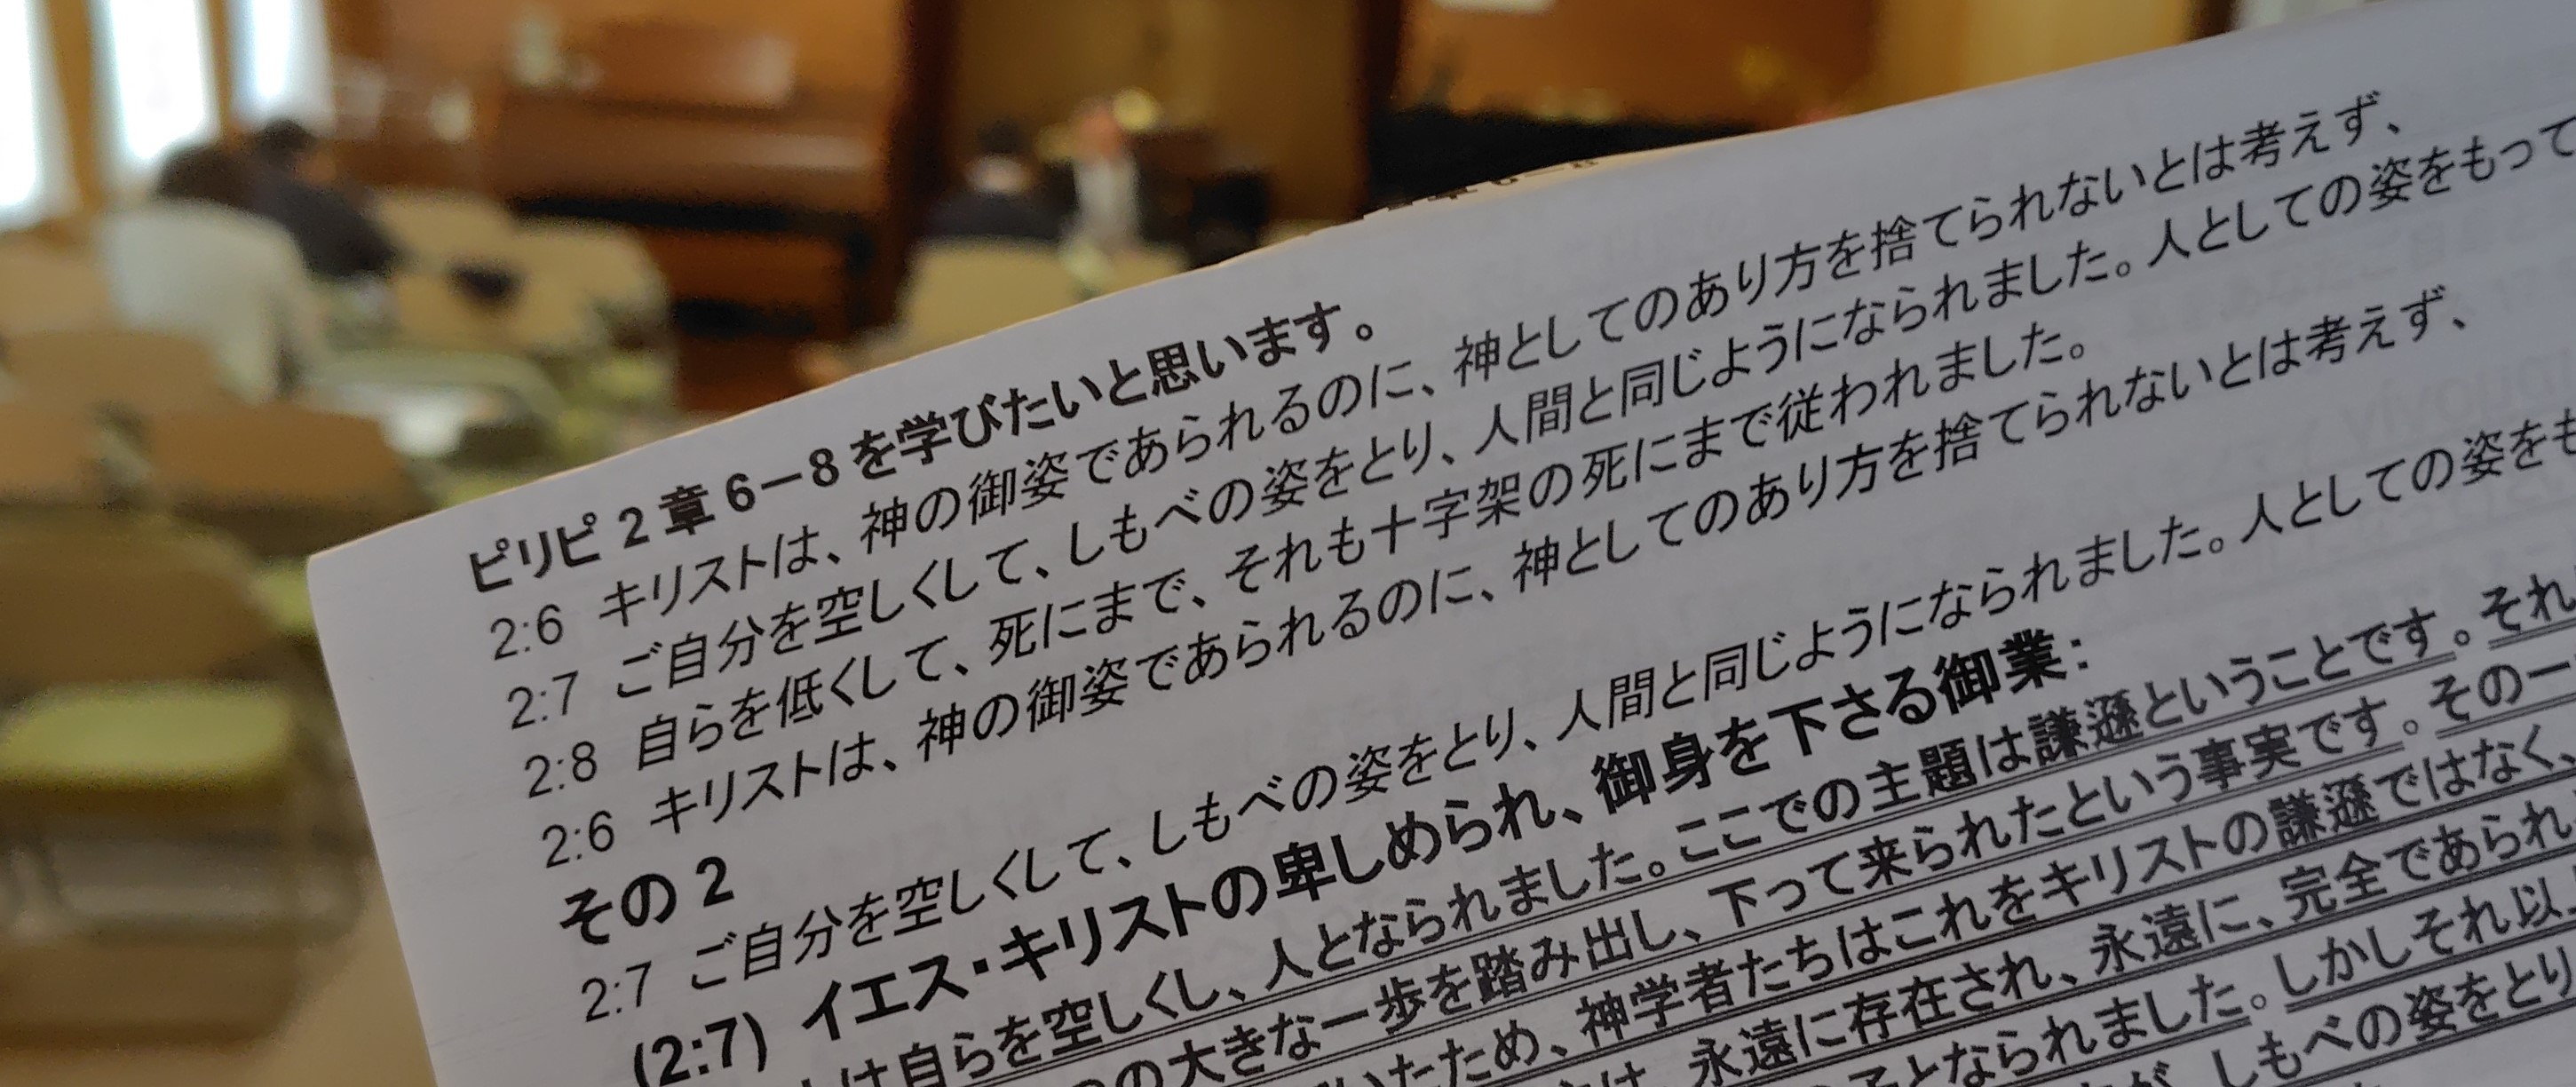 ピリピ 2 章 6－8 を学びたいと思います。
2:6 キリストは、神の御姿であられるのに、神としてのあり方を捨てられないとは考えず、
2:7 ご自分を空しくして、しもべの姿をとり、人間と同じようになられました。人としての姿をもって
2:8 自らを低くして、死にまで、それも十字架の死にまで従われました。
2:6 キリストは、神の御姿であられるのに、神としてのあり方を捨てられないとは考えず、
その 2
2:7 ご自分を空しくして、しもべの姿をとり、人間と同じようになられました。人としての姿をも
(2:7) イエス・キリストの卑しめられ、御身を下さる御業：
は自らを空しくし、人となられました。ここでの主題は謙遜ということです。それ
の大きな一歩を踏み出し、下って来られたという事実です。その一
ため、神学者たちはこれをキリストの謙遜ではなく、
永遠に存在され、永遠に、完全であられ
となられました。しかしそれ以
しもべの姿をとり